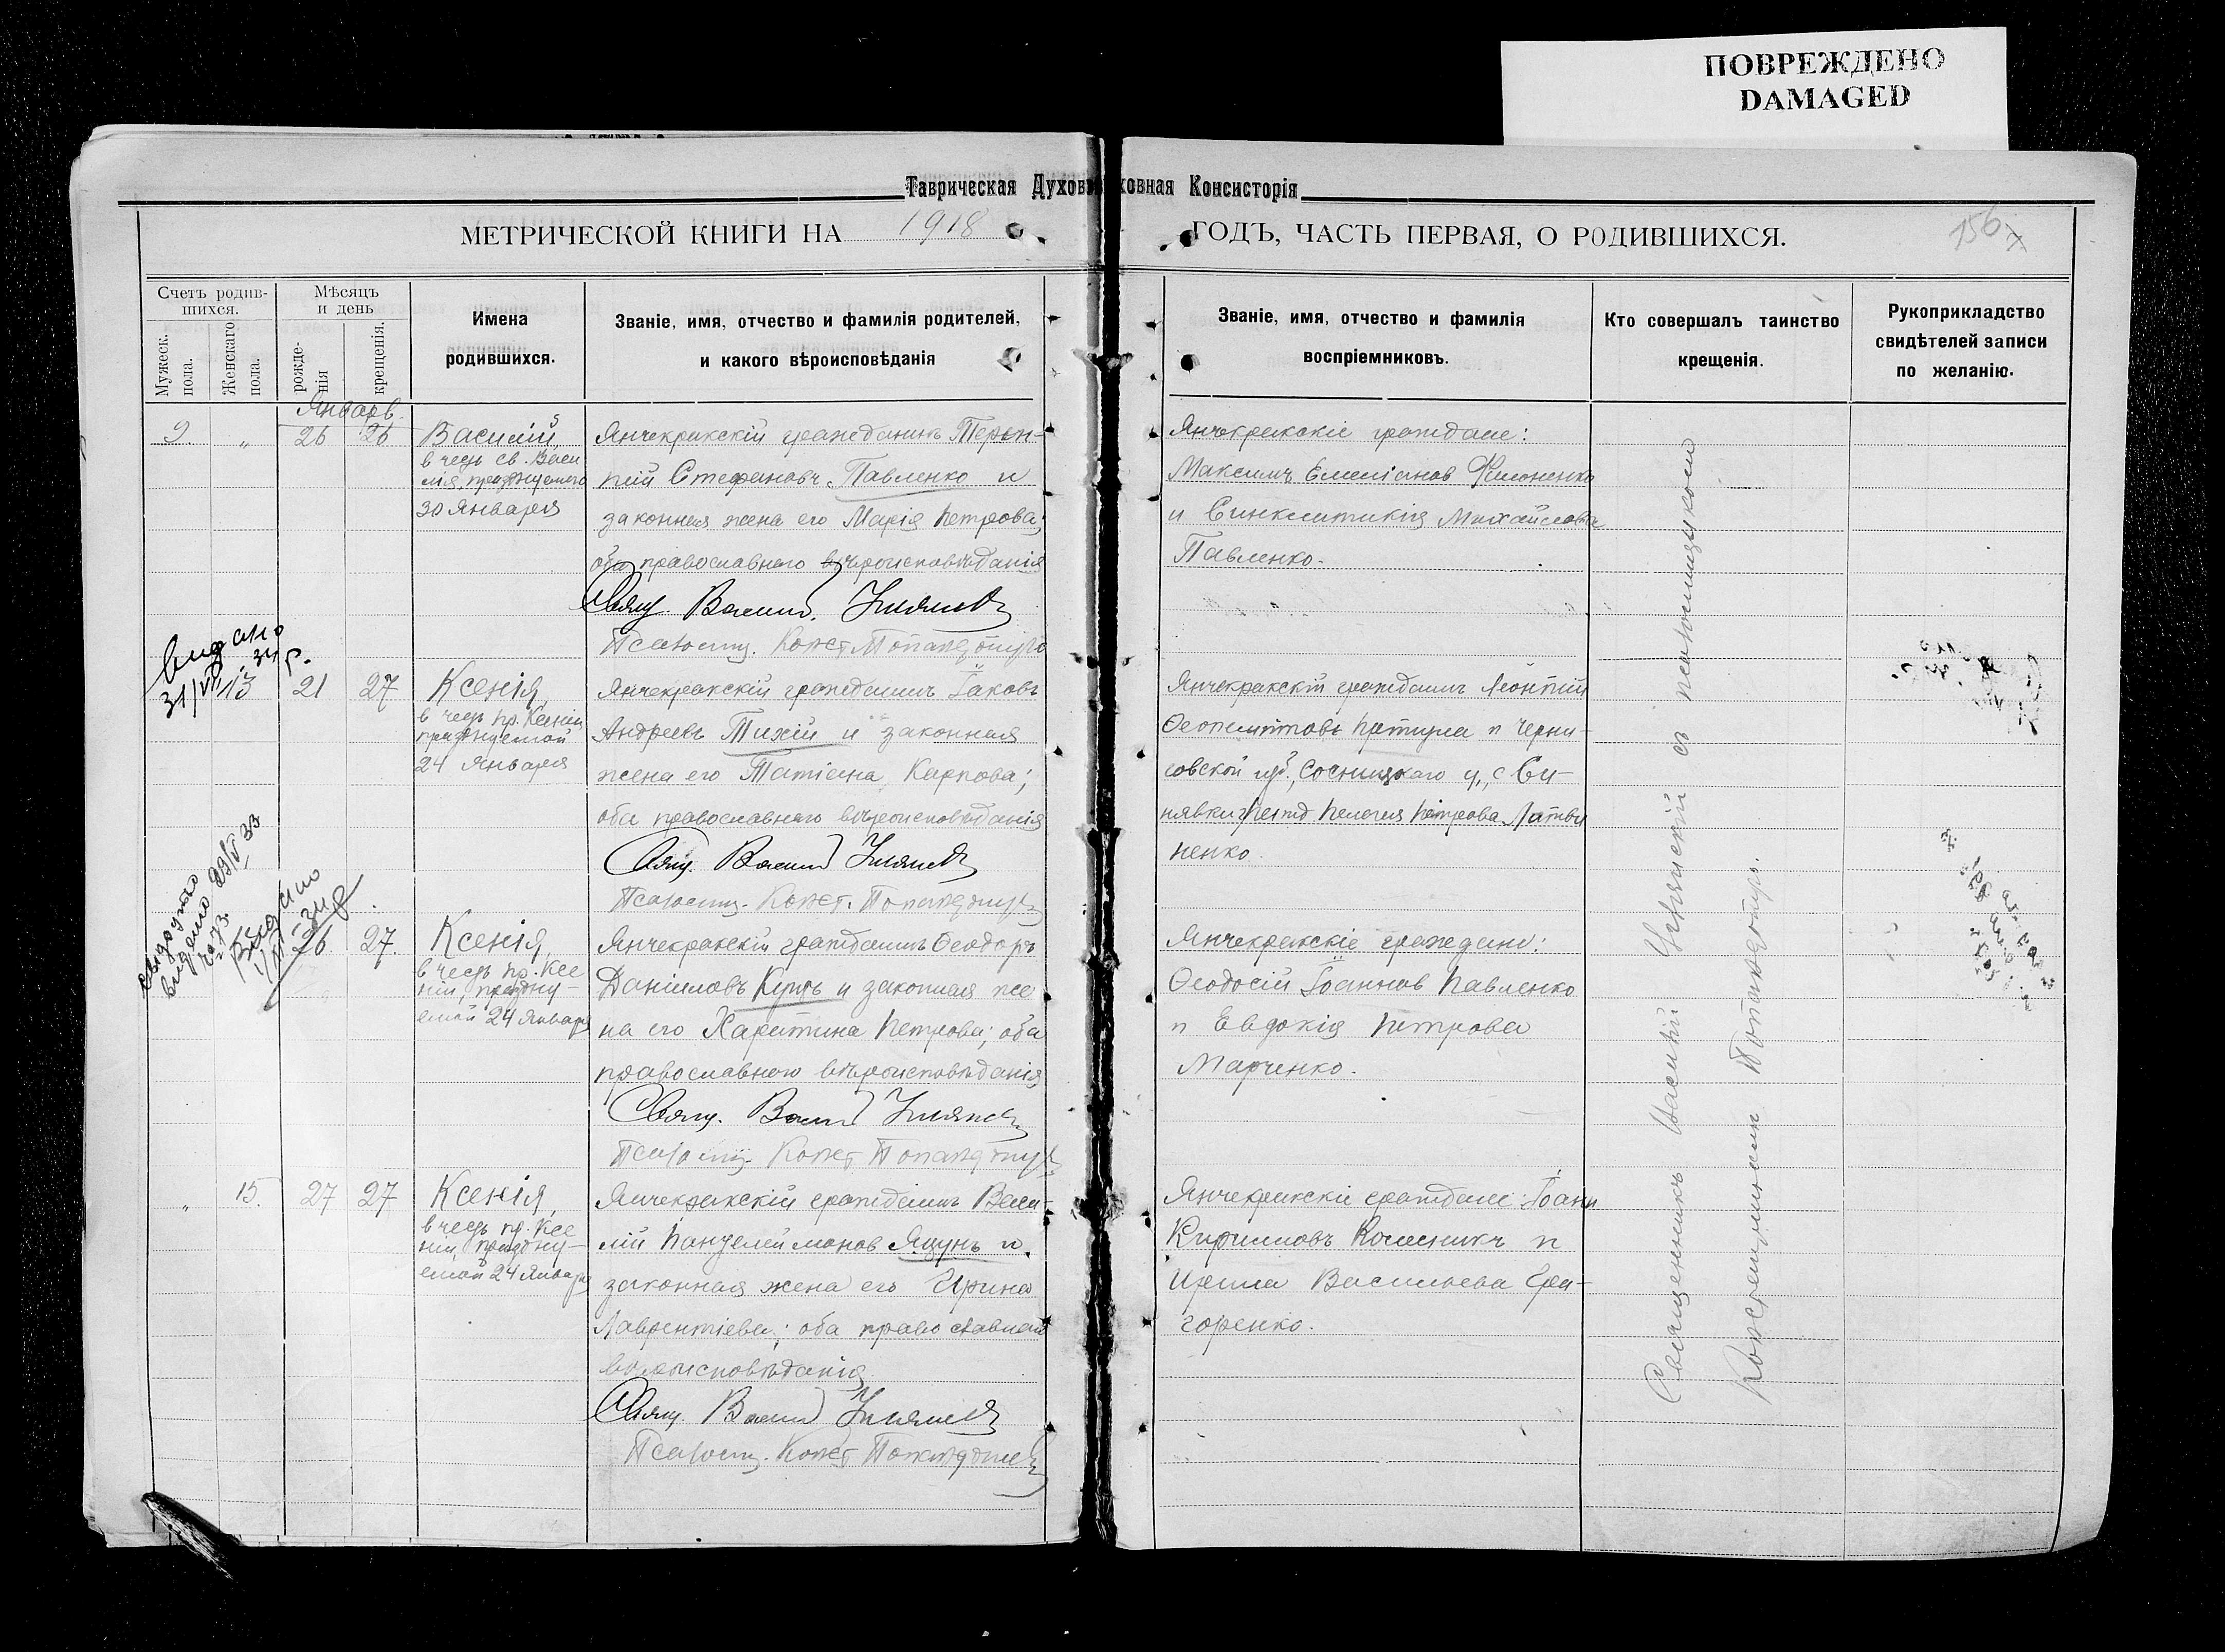 ПОВРЕЖДЕНО
DAMAGED
Таврическая Духовная Консисторія
МЕТРИЧЕСКОЙ КНИГИ НА 1918 ГОДЪ, ЧАСТЬ ПЕРВАЯ, О РОДИВШИХСЯ.
156
Счетъ родив-
шихся.
Мужеск.
пола.
Женскаго
пола.
Мѣсяцъ
и день
рожде-
нія
крещенія.
Имена
родившихся.
Званіе, имя, отчество и фамилія родителей,
и какого вѣроисповѣданія
Званіе, имя, отчество и фамилія
воспріемниковъ.
Кто совершалъ таинство
крещенія.
Рукоприкладство
свидѣтелей записи
по желанію.
Январь
9. " 26 26
Василій,
в чесь св. Васи
лія, празднуемаго
30 Января
Янчекракскій гражданинъ
Стефановъ Павленко и
законная жена его Марія Петрова;
оба православнаго вѣроисповѣданія
Свящ. Василій
Псаломщ. Конст.
Янчекракскіе граждане:
Максимъ Емеліанов Филоненко
и Синклитикія Михайлова
Павленко.
Видано
31/VII 34 р.
13 21 27
Ксенія,
в чесь пр. Ксеніи
празднуемой
24 Января
Янчекракскій гражданинъ Іаковъ
Андреевъ Тихій и законная
жена его Татіана Карпова;
оба православнаго вѣроисповѣданія
Свящ. Василій
Псаломщ. Конст.
Янчекракскій гражданинъ Леонтій
и Черни-
говской губ., Сосницкаго у., с. Си-
нявки Пелагія Петрова Литви
ненко.
видано
26. 27.
Ксенія,
в чесь пр. Ксе
ніи, праздну-
емой 24 Января
Янчекракскій гражданинъ Ѳеодоръ
Даніиловъ и законная же
на его Харитина Петрова; оба
православнаго вѣроисповѣданія
Свящ. Василій
Псаломщ. Конст.
Янчекракскіе граждане:
Ѳеодосій Іоаннов Павленко
и Евдокія Петрова
Марченко.
" 15. 27 27
Ксенія,
в чесь пр. Ксе
ніи, праздну-
емой 24 Января
Янчекракскій гражданинъ Васи-
лій Пантелеймонов Яцунъ и
законная жена его Ирина
Лаврентіева; оба православнаго
вѣроисповѣданія
Свящ. Василій
Псаломщ. Конст.
Янчекракскіе граждане: Іоанн
Кирилловъ Колесникъ и
Ирина Васильева Гри-
горенко.
Священникъ Василій съ псаломщикомъ